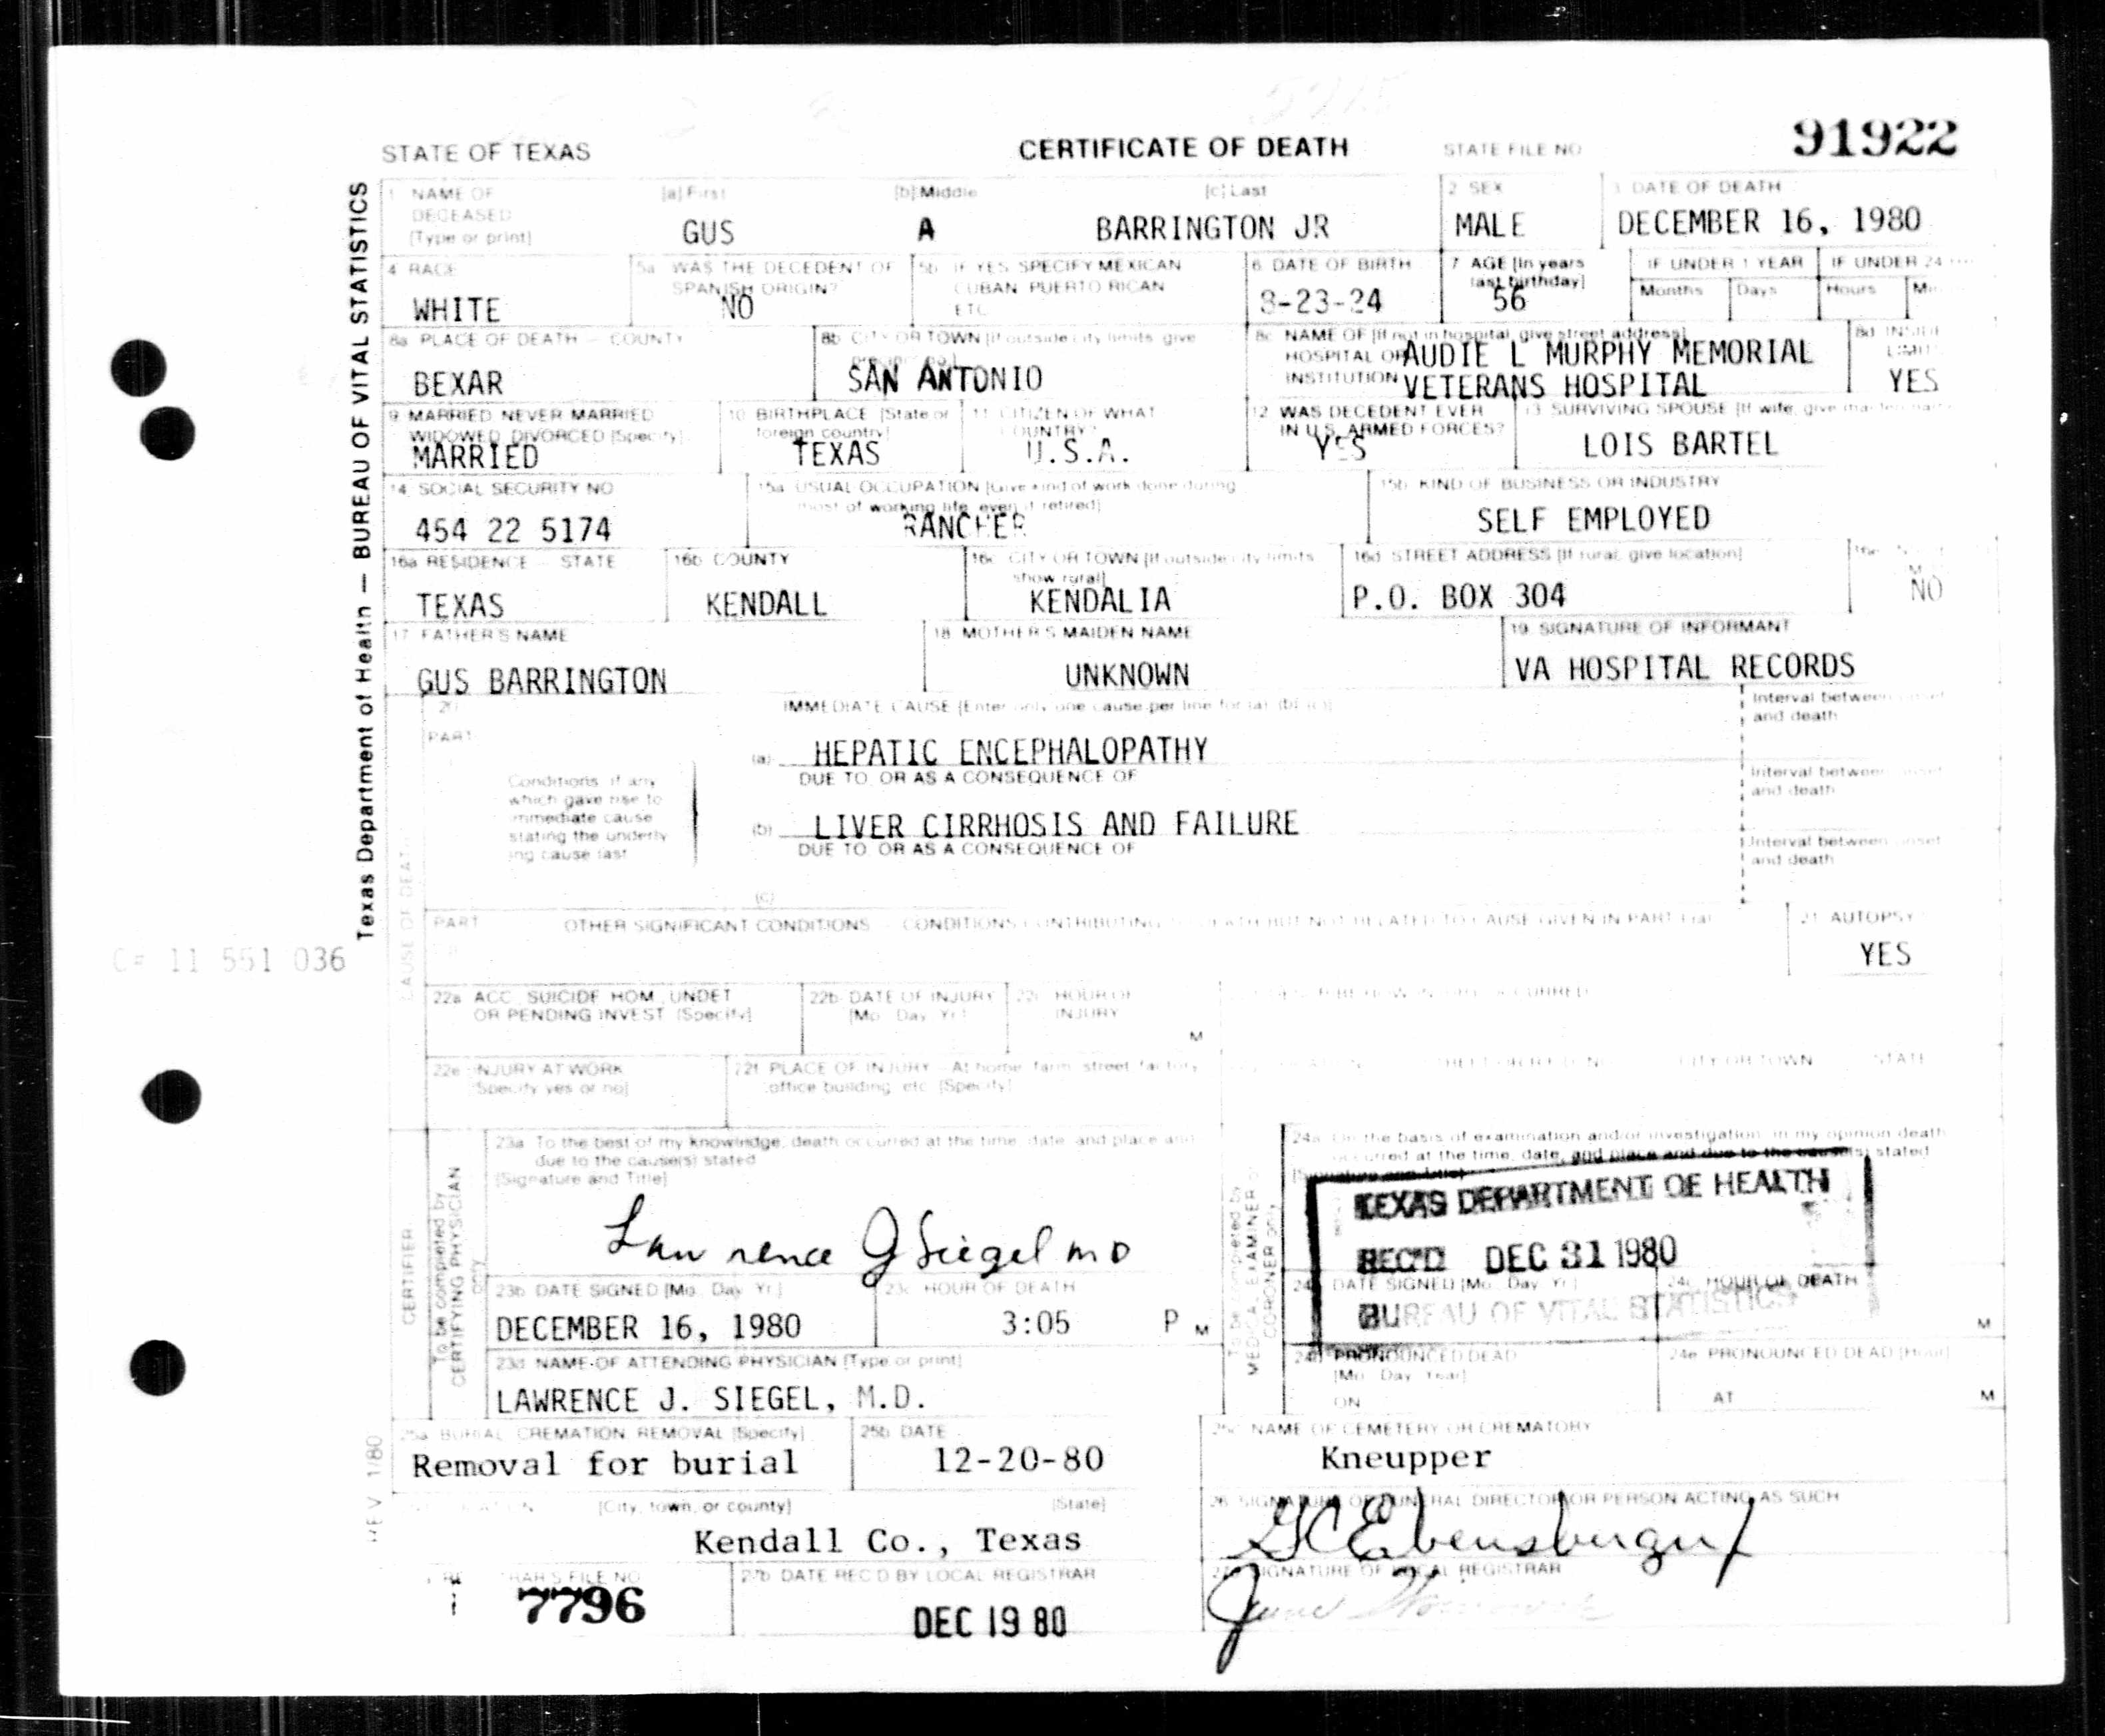 STATE OF TEXAS
CERTIFICATE OF DEATH
STATE FILE NO
91922
Texas Department of Health — BUREAU OF VITAL STATISTICS
1 NAME OF DECEASED [Type or print]
[a] First
[b] Middle
[c] Last
GUS A BARRINGTON JR
2 SEX
MALE
3 DATE OF DEATH
DECEMBER 16, 1980
4 RACE
WHITE
5a WAS THE DECEDENT OF SPANISH ORIGIN?
NO
5b IF YES, SPECIFY MEXICAN CUBAN PUERTO RICAN ETC
6 DATE OF BIRTH
-23-24
7 AGE [In years last birthday]
56
IF UNDER 1 YEAR
Months Days
IF UNDER 24
Hours
8a PLACE OF DEATH — COUNTY
BEXAR
8b CITY OR TOWN [If outside city limits, give precinct no.]
SAN ANTONIO
8c NAME OF [If not in hospital, give street address] HOSPITAL OR INSTITUTION
AUDIE L MURPHY MEMORIAL
VETERANS HOSPITAL
8d
YES
9 MARRIED NEVER MARRIED WIDOWED DIVORCED [Specify]
MARRIED
10 BIRTHPLACE [State or foreign country]
TEXAS
11 CITIZEN OF WHAT COUNTRY?
U.S.A.
12 WAS DECEDENT EVER IN U.S. ARMED FORCES?
YES
13 SURVIVING SPOUSE [If wife, give maiden name]
LOIS BARTEL
14 SOCIAL SECURITY NO
454 22 5174
15a USUAL OCCUPATION [Give kind of work done during most of working life, even if retired]
RANCHER
15b KIND OF BUSINESS OR INDUSTRY
SELF EMPLOYED
16a RESIDENCE — STATE
TEXAS
16b COUNTY
KENDALL
16c CITY OR TOWN [If outside city limits show rural]
KENDALIA
16d STREET ADDRESS [If rural, give location]
P.O. BOX 304
NO
17 FATHER'S NAME
GUS BARRINGTON
18 MOTHER'S MAIDEN NAME
UNKNOWN
19 SIGNATURE OF INFORMANT
VA HOSPITAL RECORDS
CAUSE OF DEATH
20
PART
IMMEDIATE CAUSE [Enter only one cause per line for (a), (b), (c)]
Conditions if any which gave rise to immediate cause stating the underlying cause last
(a) HEPATIC ENCEPHALOPATHY
DUE TO OR AS A CONSEQUENCE OF
(b) LIVER CIRRHOSIS AND FAILURE
DUE TO OR AS A CONSEQUENCE OF
(c)
Interval between onset and death
Interval between onset and death
Interval between onset and death
PART
OTHER SIGNIFICANT CONDITIONS — CONDITIONS CONTRIBUTING TO DEATH BUT NOT RELATED TO CAUSE GIVEN IN PART I (a)
21 AUTOPSY
YES
C# 11 551 036
22a ACC, SUICIDE HOM, UNDET OR PENDING INVEST [Specify]
22b DATE OF INJURY [Mo. Day, Yr.]
22c HOUR OF INJURY
M
22e INJURY AT WORK [Specify yes or no]
22f PLACE OF INJURY — At home, farm, street, factory, office building, etc [Specify]
CITY OR TOWN STATE
CERTIFIER
To be completed by CERTIFYING PHYSICIAN only
23a To the best of my knowledge, death occurred at the time, date, and place and due to the cause(s) stated
[Signature and Title]
Lawrence J Siegel MD
23b DATE SIGNED [Mo. Day, Yr.]
DECEMBER 16, 1980
23c HOUR OF DEATH
3:05 P M
23d NAME OF ATTENDING PHYSICIAN [Type or print]
LAWRENCE J. SIEGEL, M.D.
To be completed by MEDICAL EXAMINER or CORONER only
24a On the basis of examination and/or investigation, in my opinion death occurred at the time, date, and place and due to the cause(s) stated
[Signature and title]
TEXAS DEPARTMENT OF HEALTH
REC'D DEC 31 1980
BUREAU OF VITAL STATISTICS
DATE SIGNED [Mo. Day, Yr.]
24c HOUR OF DEATH
M
24d PRONOUNCED DEAD [Mo. Day, Year]
ON
24e PRONOUNCED DEAD [Hour]
AT M
25a BURIAL, CREMATION, REMOVAL [Specify]
Removal for burial
25b DATE
12-20-80
25c NAME OF CEMETERY OR CREMATORY
Kneupper
[City, town, or county] [State]
Kendall Co., Texas
26 SIGNATURE OF FUNERAL DIRECTOR OR PERSON ACTING AS SUCH
GC Ebensberger
REGISTRAR'S FILE NO
7796
27b DATE REC'D BY LOCAL REGISTRAR
DEC 19 80
SIGNATURE OF LOCAL REGISTRAR
REV 1/80